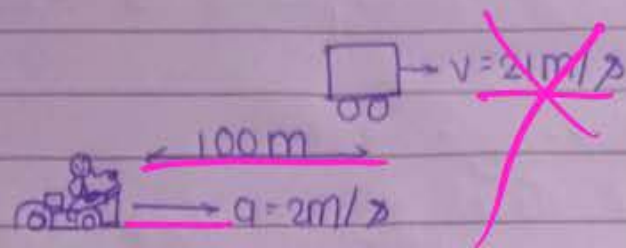 v = 21 m/s
100m
a = 2m/s